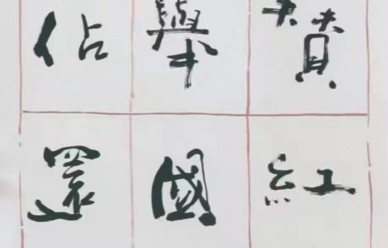 賛紅
舉國
佔還